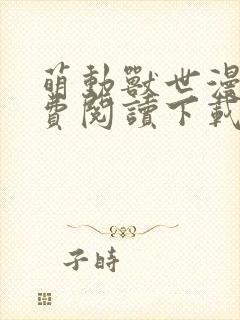 萌動獸世漫
費閱讀下載
子時